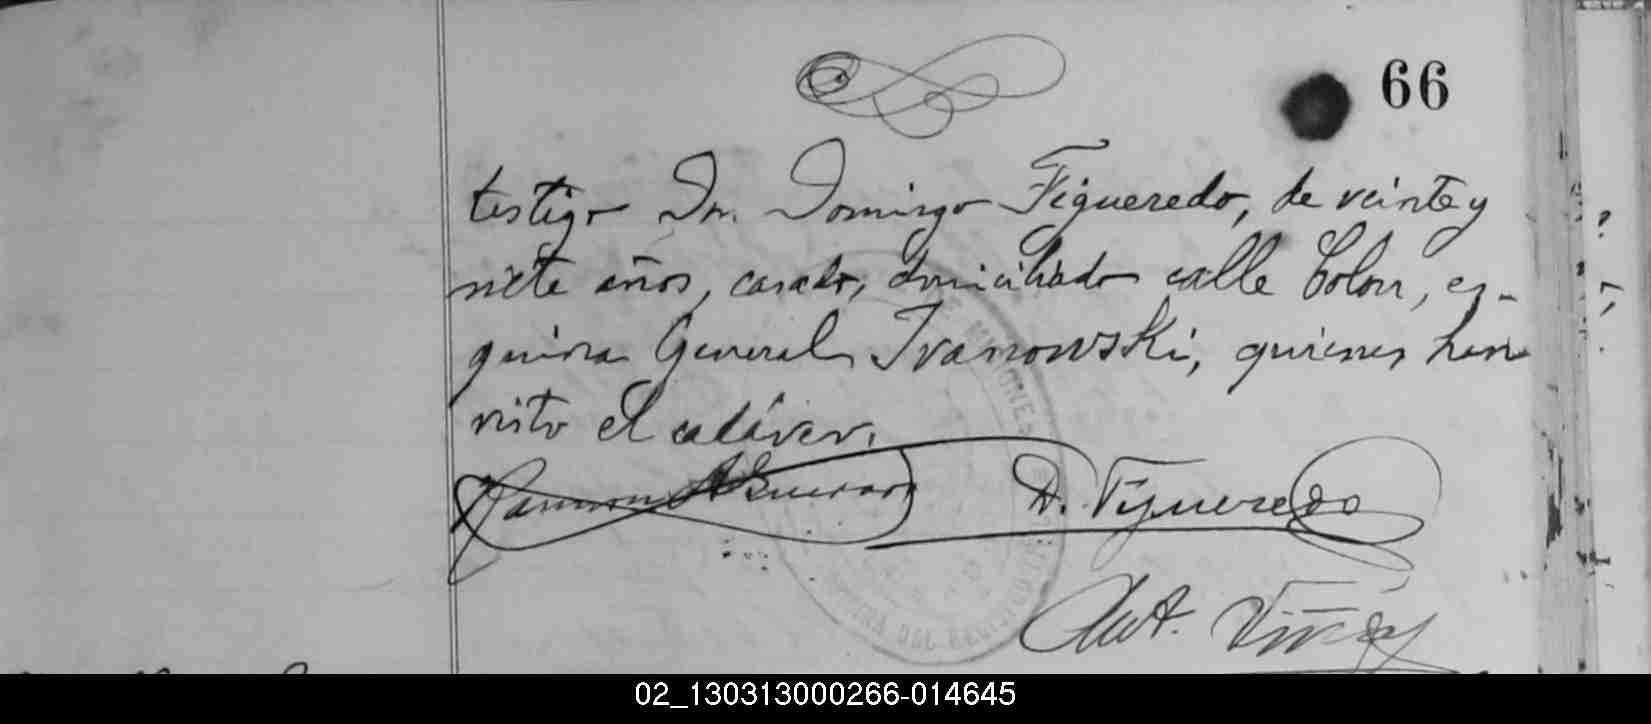 66
testigo Dn. Domingo Figueredo, de veinte y
siete años, casado, domiciliado calle Colon, es-
quina General Ivanowski, quienes han
visto el cadáver.
Ramon
D. Figueredo
Ant. Viñas
MISIONES
DEL REGISTRO
02_130313000266-014645